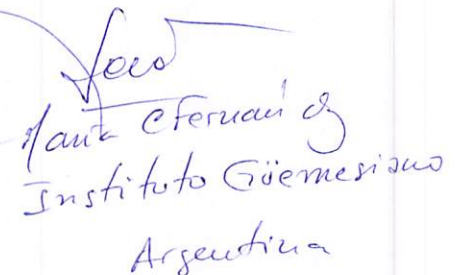 Maria C Fernández
Instituto Güemesiano
Argentina